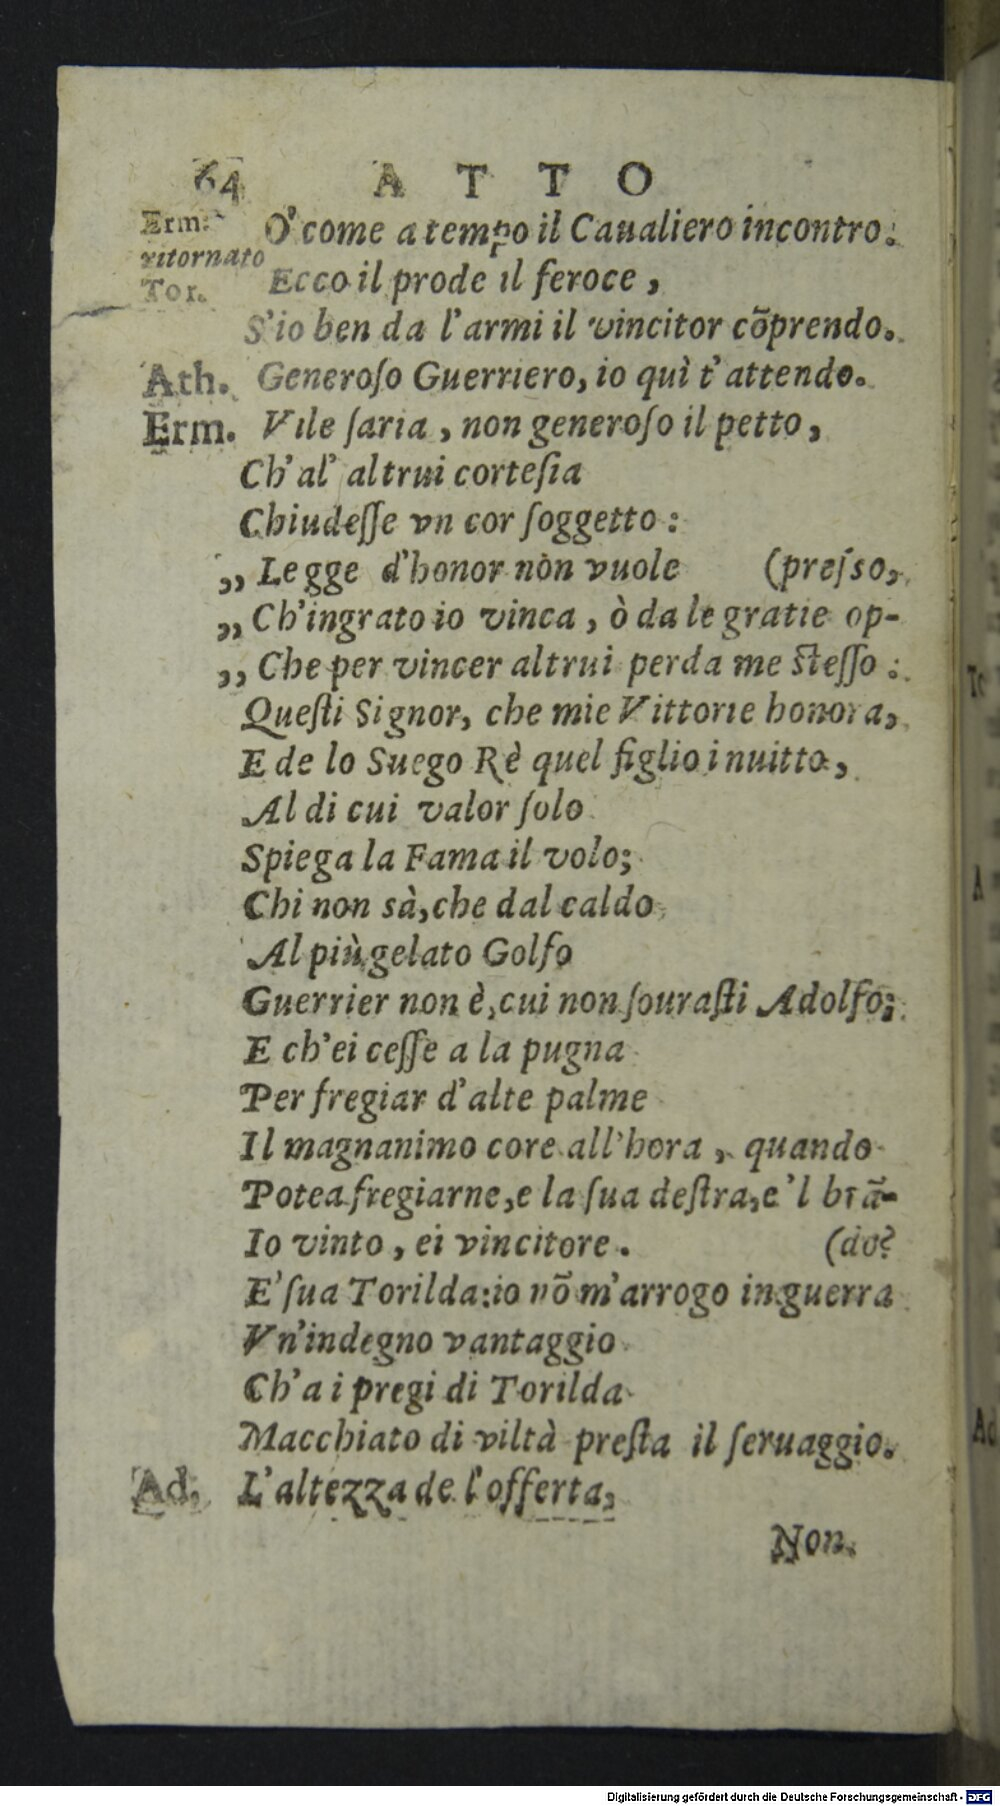 64 A T T O
Erm. O' come a tempo il Caualiero incontro.
ritornato
Tor. Ecco il prode il feroce,
S'io ben da l'armi il vincitor cõprendo.
Ath. Generoſo Guerriero, io quì t'attendo.
Erm. Vile ſaria, non generoſo il petto,
Ch'al' altrui corteſia
Chiudeſſe vn cor ſoggetto:
,, Legge d'honor non vuole (preſso,
,, Ch'ingrato io vinca, ò da le gratie op-
,, Che per vincer altrui perda me ſteſſo:
Queſti Signor, che mie Vittorie honora,
E de lo Suego Rè quel figlio inuitto,
Al di cui valor ſolo
Spiega la Fama il volo;
Chi non sà, che dal caldo
Al più gelato Golfo
Guerrier non è, cui non ſouraſti Adolfo;
E ch'ei ceſſe a la pugna
Per fregiar d'alte palme
Il magnanimo core all'hora, quando
Potea fregiarne, e la ſua deſtra, e 'l brã-
Io vinto, ei vincitore. (do?
E' ſua Torilda: io nõ m'arrogo in guerra
Vn'indegno vantaggio
Ch'a i pregi di Torilda
Macchiato di viltà preſta il ſeruaggio.
Ad. L'altezza de l'offerta,
Non.
Digitalisierung gefördert durch die Deutsche Forschungsgemeinschaft - DFG